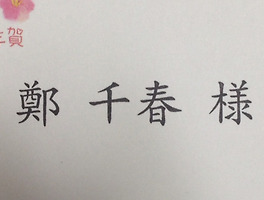 年賀
鄭 千春 様